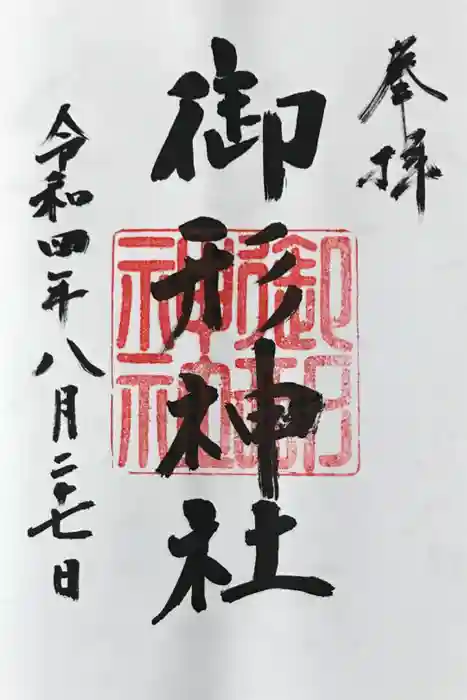 奉拝
御形神社
御形
神社
令和四年八月二十七日